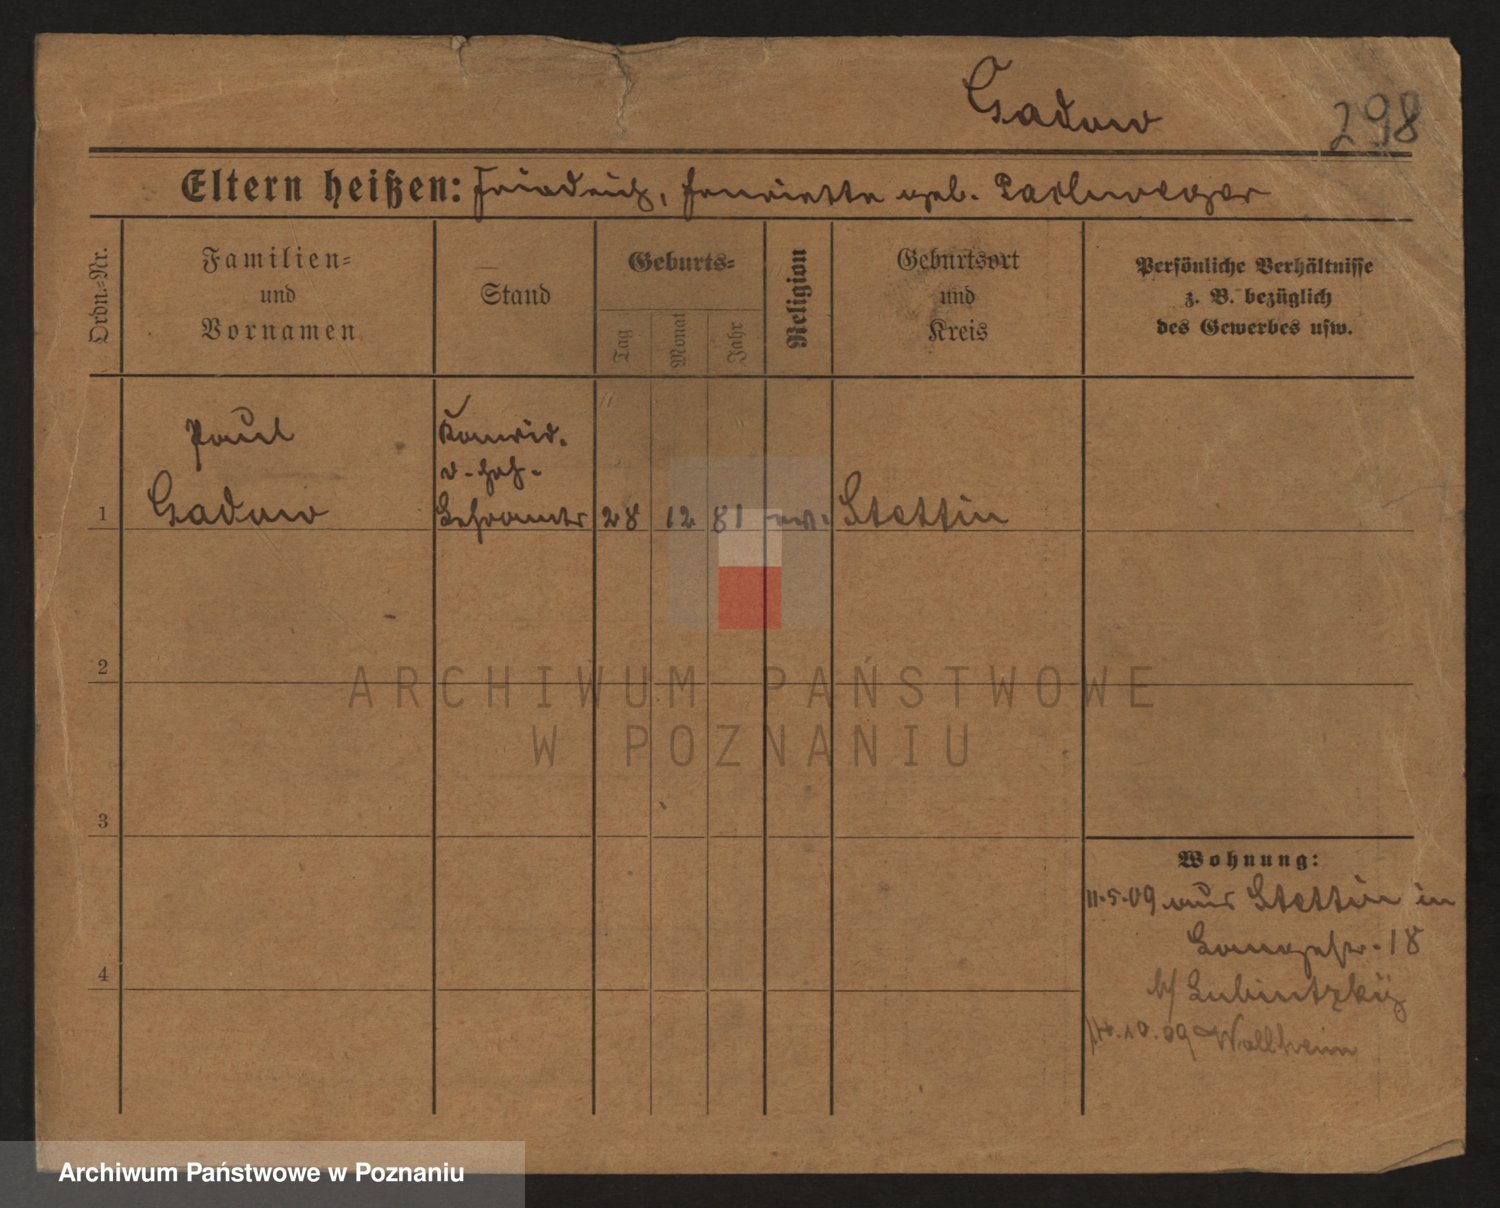 Gadow
298
Eltern heißen: Friedrich, Henriette geb.
Ordn.-Nr.
Familien-
und
Vornamen
Stand
Geburts-
Tag
Monat
Jahr
Religion
Geburtsort
und
Kreis
Persönliche Verhältnisse
z. B. bezüglich
des Gewerbes usw.
Paul
Kandid.
d. höh.
1 Gadow Lehramts 28 12 81 ev. Stettin
2
ARCHIWUM PAŃSTWOWE
W POZNANIU
3
Wohnung:
11.5.09 aus Stettin in
Langestr. 18
b/
4
.10.09 Wollheim
Archiwum Państwowe w Poznaniu